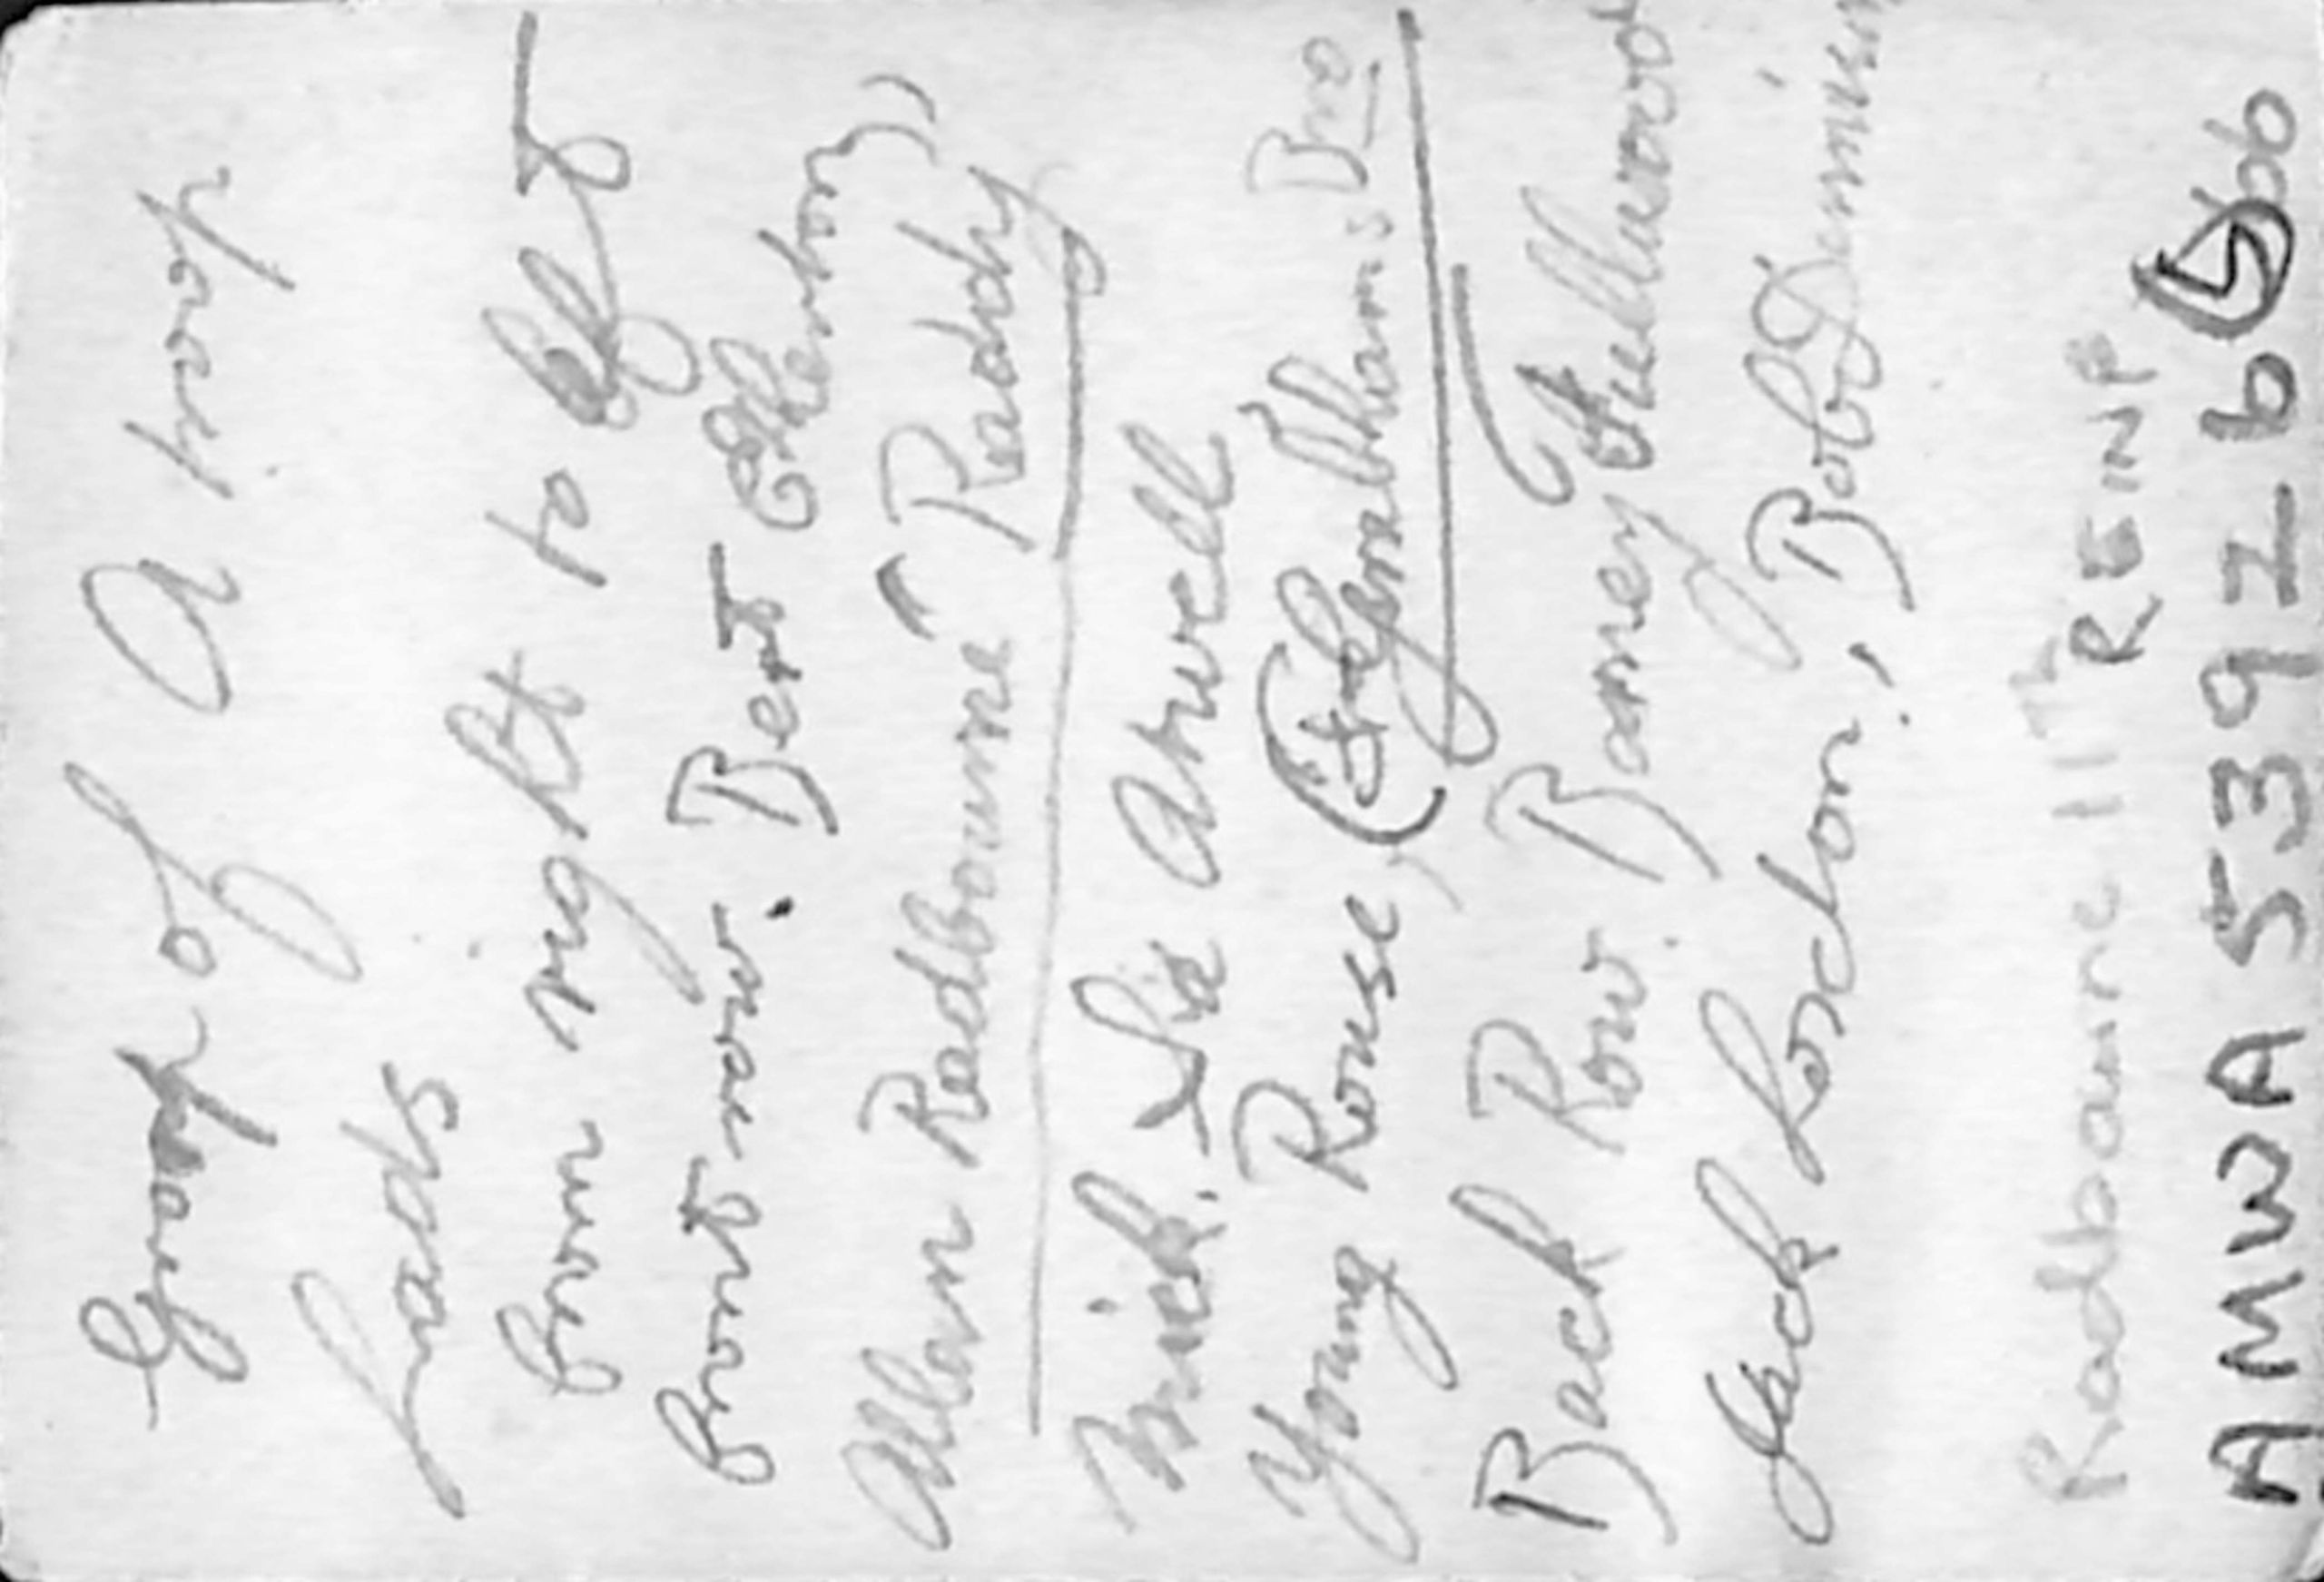 Group of A troop
Lads
from right to left
front row. Bert Ekenton)
Allan Radbourne " Raddy
Mick. Sid Arwell
Young Rouse, (Fredjnr Allhams Bro
Back Row. Barney Fullwood
Jack Loclon, Bob Dennison
Radbourne 11th REINF
AMWA 5392-6 (5) bb